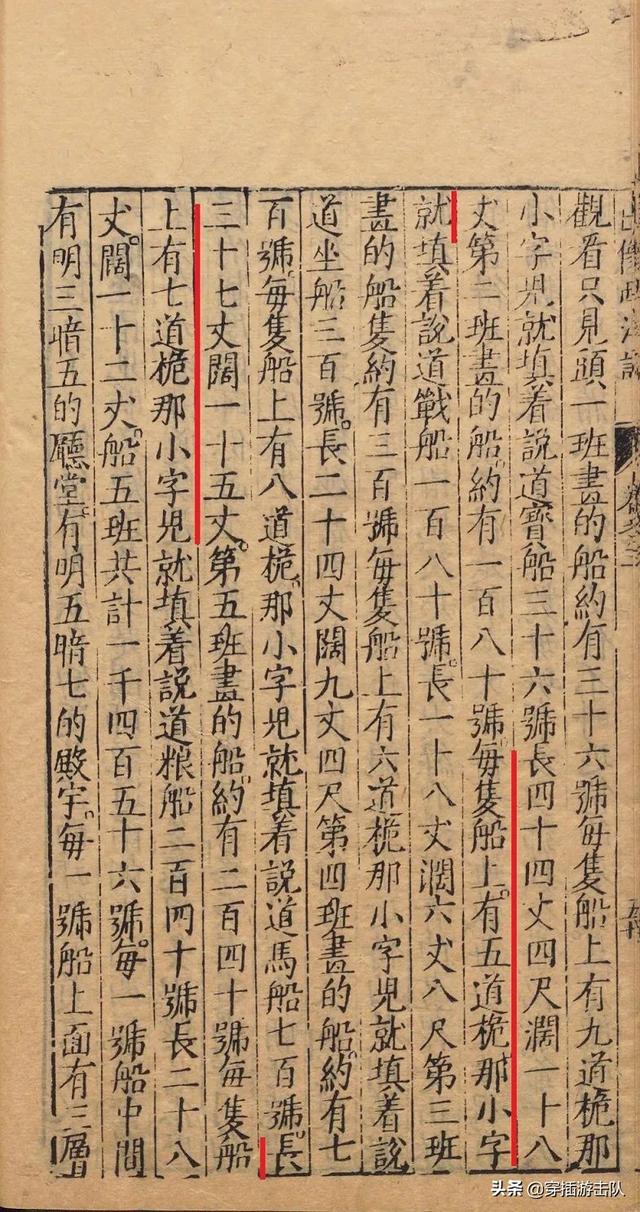 觀看只見頭一班畫的船約有三十六號每隻船上有九道桅那
小字兒就填着說道寳船三十六號長四十四丈四尺濶一十八
丈第二班畫的船約有一百八十號每隻船上。有五道桅那小字
就填着說道戰船一百八十號。長一十八丈濶六丈八尺第三班
畫的船隻約有三百號每隻船上有六道桅那小字兒就填着說
道坐船三百號。長二十四丈闊九丈四尺第四班畫的船約有七
百號。每隻船上有八道桅。那小字兒就填着說道馬船七百號。長
三十七丈闊一十五丈。第五班畫的船。約有二百四十號每隻船
上有七道桅那小字兒就填着說道粮船二百四十號長二十八
丈。闊一十二丈。船五班共計一千四百五十六號。每一號船中間
有明三暗五的廳堂有明五暗七的殿宇。每一號船上面有三層
头条 @穿插游击队